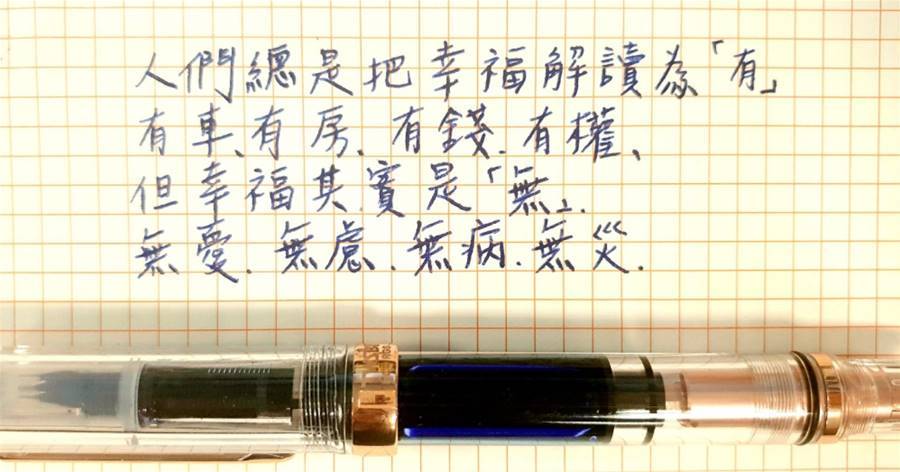 人們總是把幸福解讀為「有」
有車、有房、有錢、有權、
但幸福其實是「無」.
無憂、無慮、無病、無災.